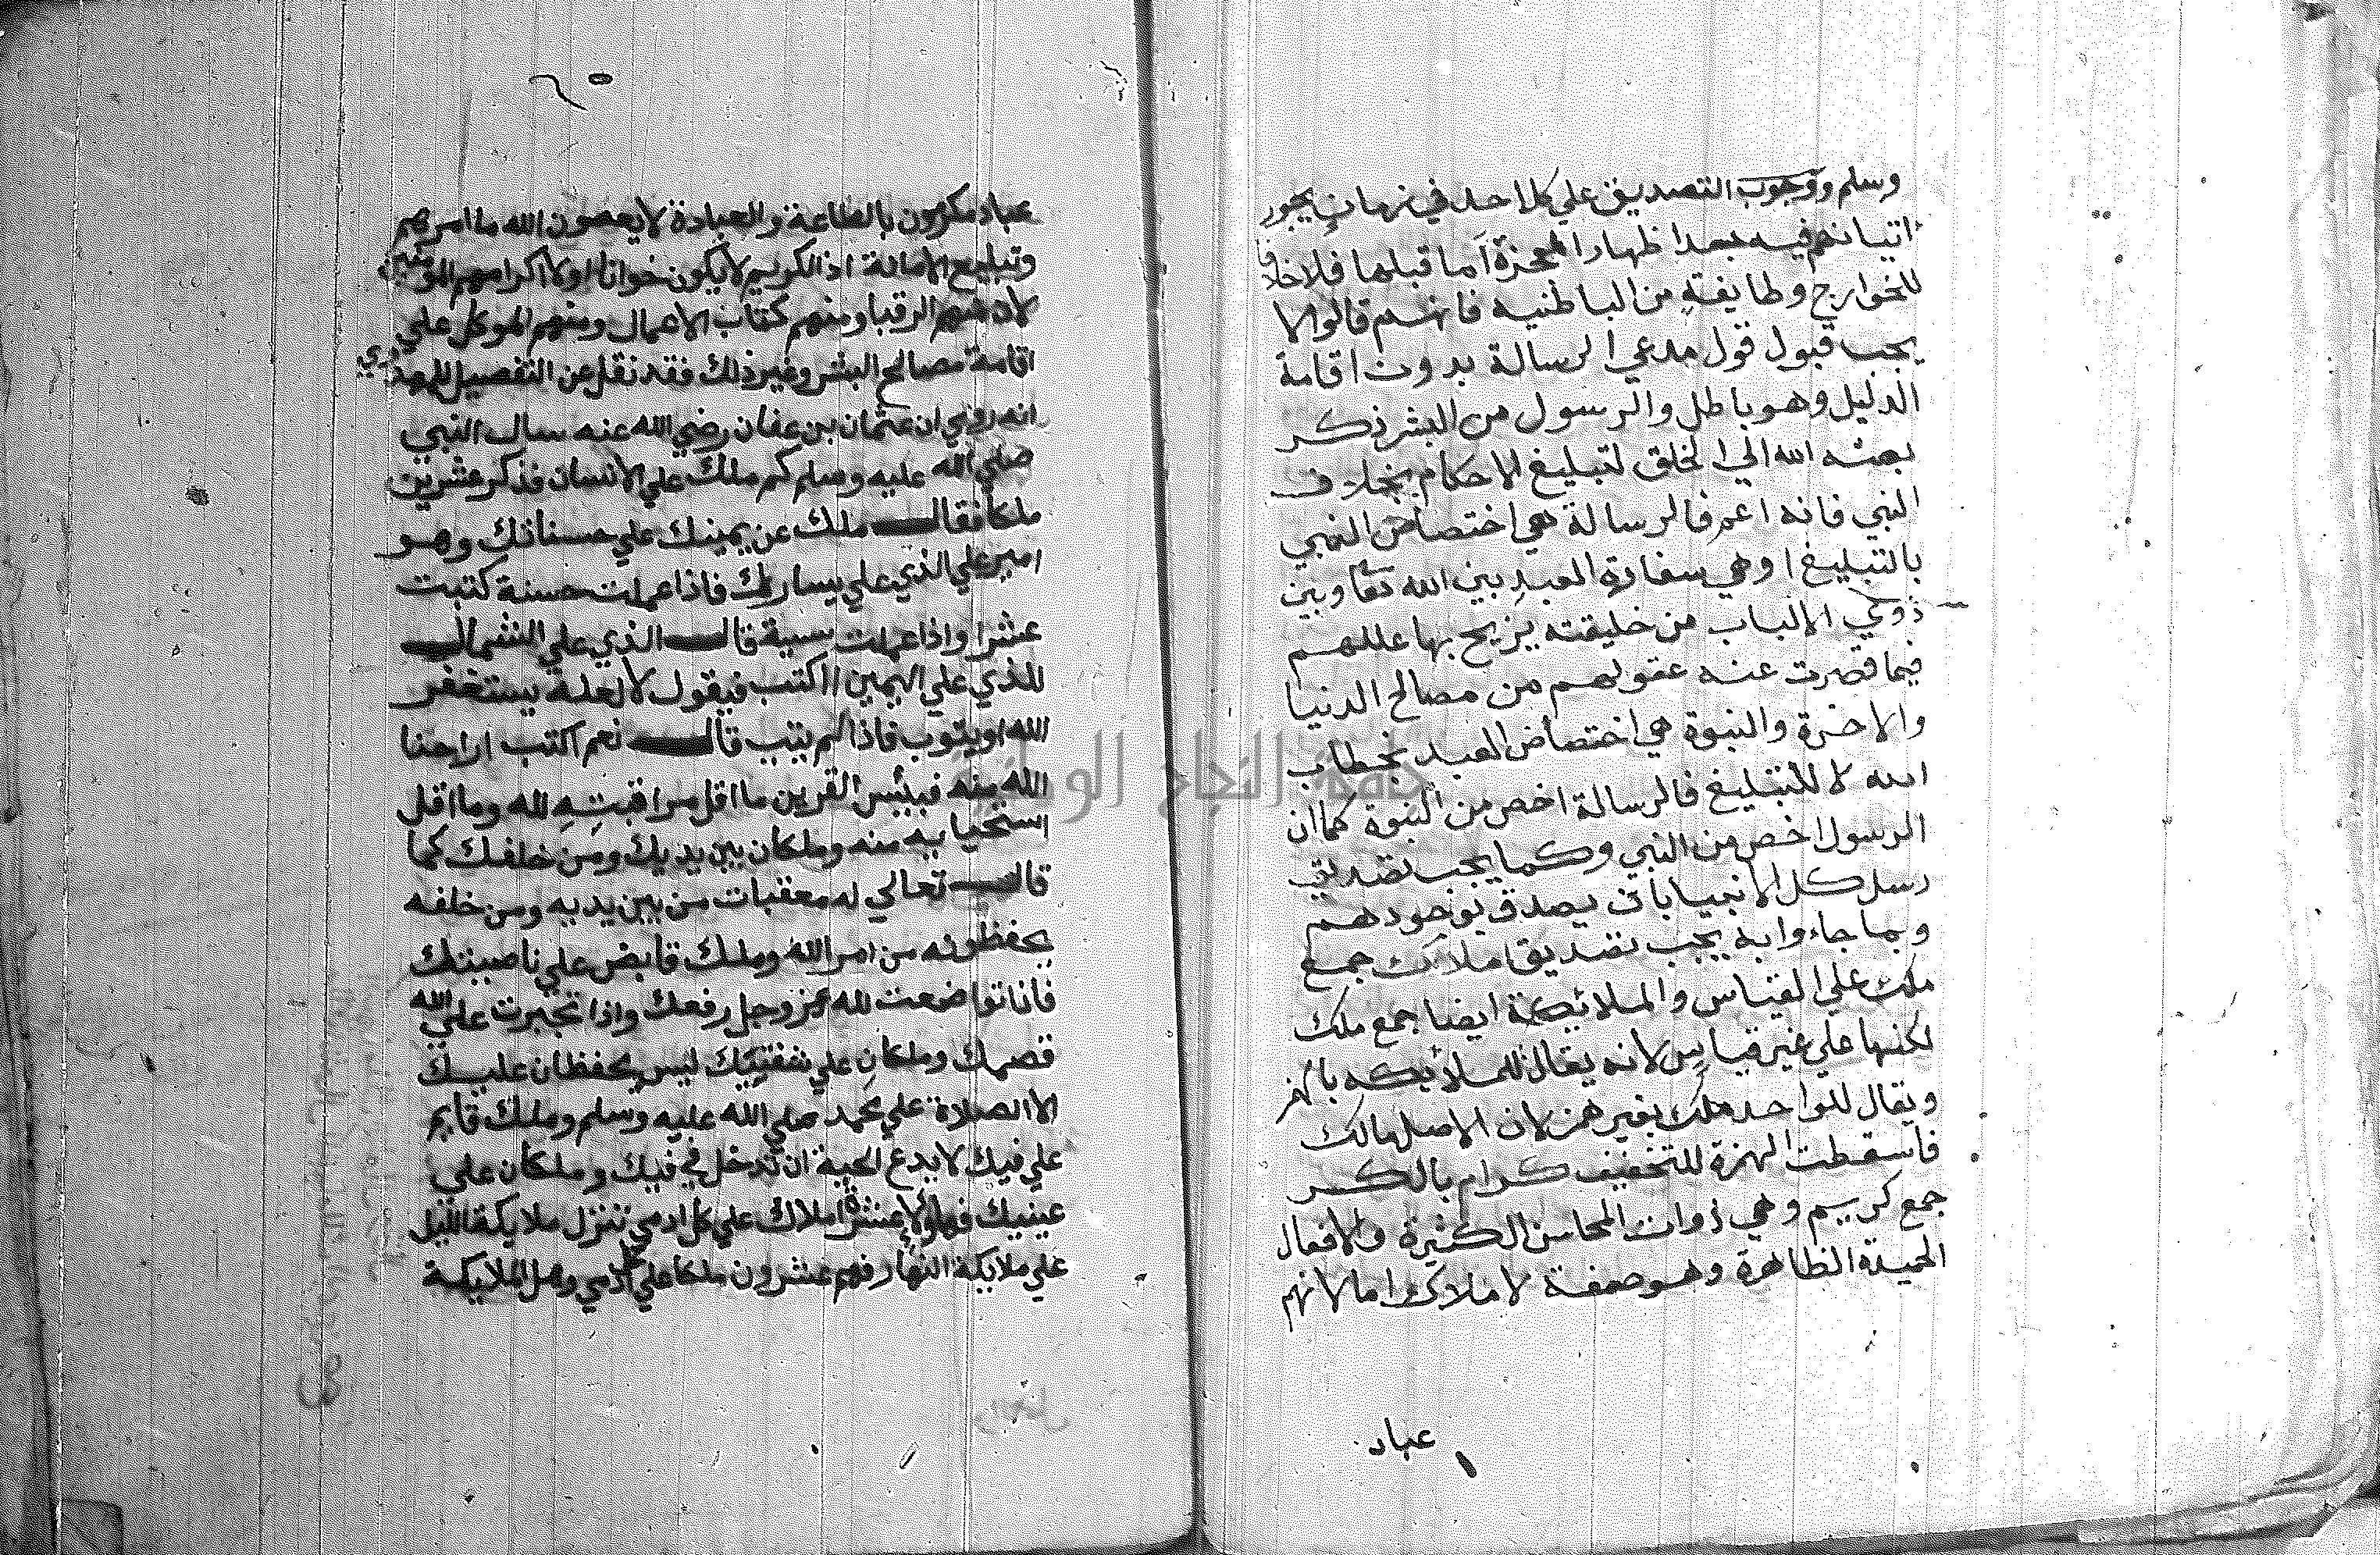 وسلم ووجوب التصديق علي كل احد في زمان يجوز
اتيانهم فيه بعد اظهار المعجزة اما قبلها فلا خلافا
للخوارج وطايفة من الباطنية فانهم قالوا لا
يجب قبول قول مدعي الرسالة بدون اقامة
الدليل وهو باطل والرسول من البشر ذكر
بعثه الله الي الخلق لتبليغ الاحكام بخلاف
النبي فانه اعم فالرسالة هي اختصاص النبي
بالتبليغ او هي سفارة العبد بين الله تعا وبين
ذوي الالباب من خليقته يزيح بها عللهم
فيما قصرت عنه عقولهم من مصالح الدنيا
والاخرة والنبوة هي اختصاص العبد بخطاب
الله لا للتبليغ فالرسالة اخص من النبوة كما ان
الرسول اخص من النبي وكما يجب تصديق
رسل كل الانبيا بان يصدق بوجودهم
وبما جاءوا به يجب تصديق املاك جمع
ملك علي القياس والملائكة ايضا جمع ملك
لكنها علي غير قياس لانه يقال للملائكه بالهمز
ويقال للواحد ملك بغير همز لان الاصل مالك
فاسقطت الهمزة للتخفيف كرام بالكسر
جمع كريم وهي ذوات المحاسن الكثيرة والافعال
الحميدة الظاهرة وهو صفة لاملاك اما لانهم
عباد
٦٥
عباد مكرمون بالطاعة والعبادة لا يعصون الله ما امرهم
وتبليغ الامانة اذ الكريم لا يكون خوانا او لاكرامهم المومنين
لان منهم الرقبا ومنهم كتاب الاعمال ومنهم الموكل علي
اقامة مصالح البشر وغير ذلك فقد نقل عن التفصيل للمهدوي
انه روي ان عثمان بن عفان رضي الله عنه سال النبي
صلي الله عليه وسلم كم ملك علي الانسان فذكر عشرين
ملكا فقال ملك عن يمينك علي حسناتك وهو
امير علي الذي علي يسارك فاذا عملت حسنة كتبت
عشرا واذا عملت سيية قال الذي علي الشمال
للذي علي اليمين ااكتب فيقول لا لعله يستغفر
الله او يتوب فاذا لم يتب قال نعم اكتب اراحنا
الله منه فبئس القرين ما اقل مراقبته لله وما اقل
استحيابه منه وملكان بين يديك ومن خلفك كما
قال تعالي له معقبات من بين يديه ومن خلفه
يحفظونه من امر الله وملك قابض علي ناصيتك
فاذا تواضعت لله عز وجل رفعك واذا تجبرت علي الله
قصمك وملكان علي شفتيك ليس يحفظان عليك
الا الصلاة علي محمد صلي الله عليه وسلم وملك قايم
علي فيك لا يدع الحية ان تدخل في فيك وملكان علي
عينيك فهاولاء عشرة املاك علي كل ادمي تنزل ملايكة الليل
علي ملايكة النهار فهم عشرون ملكا علي كل ادمي وهل الملايكة
جامعة النجاح الوطنية